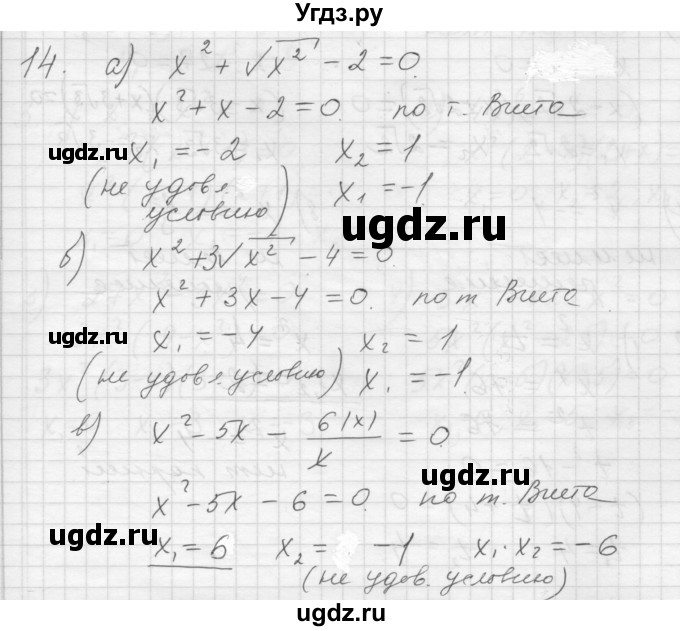 Угдз.ру
14. а) x² + √x² - 2 = 0.
x² + x - 2 = 0. по т. Виета
ugdz.ru x₁ = -2 x₂ = 1
(не удовл. условию) x₁ = -1
ugdz.ru
б) x² + 3√x² - 4 = 0.
x² + 3x - 4 = 0. по т. Виета
ugdz.ru x₁ = -4 x₂ = 1
(не удовл. условию) x₁ = -1.
в) x² - 5x - 6|x|/x = 0
ugdz.ru
x² - 5x - 6 = 0. по т. Виета
ugdz.ru
x₁ = 6 x₂ = -1 x₁ · x₂ = -6
(не удов. условию)
ugdz.ru